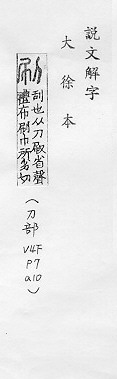 説文解字
大徐本
刷
刮也从刀㕞省聲
禮布刷巾所劣切
(刀部
V4F
P7
a10)